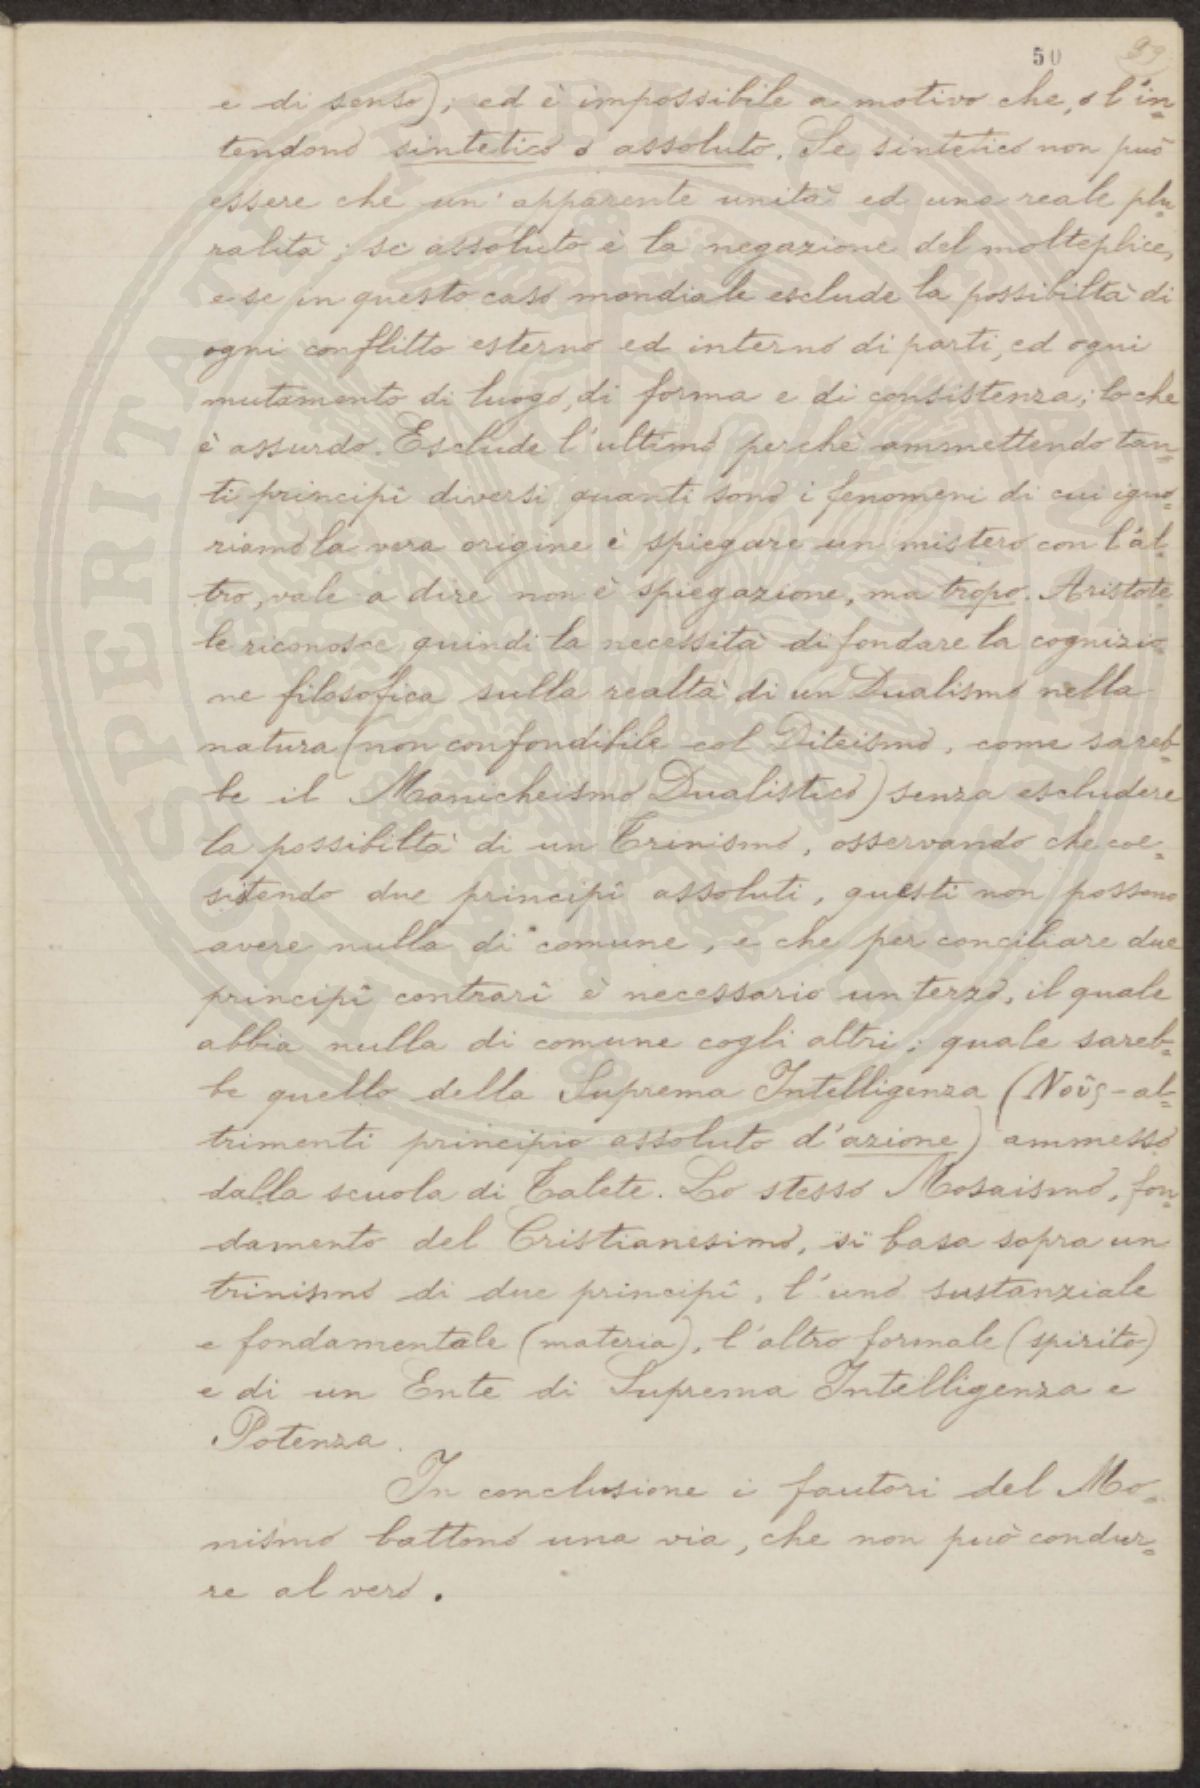 50 99
e di senso), ed è impossibile a motivo che, o l'in=
tendono sintetico o assoluto. Se sintetico non può
essere che un' apparente unità ed una reale plu=
ralità; se assoluto è la negazione del molteplice,
e se in questo caso mondiale esclude la possibiltà di
ogni conflitto esterno ed interno di parti, ed ogni
mutamento di luogo, di forma e di consistenza; lo che
è assurdo. Esclude l'ultimo perchè ammettendo tan=
ti principî diversi quanti sono i fenomeni di cui igno=
riamo la vera origine è spiegare un mistero con l'al=
tro, vale a dire non è spiegazione, ma tropo. Aristote=
le riconosce quindi la necessità di fondare la cognizio=
ne filosofica sulla realtà di un Dualismo nella
natura (non confondibile col Diteismo, come sareb=
be il Manicheismo Dualistico) senza escludere
la possibiltà di un Trinismo, osservando che coe=
sistendo due principî assoluti, questi non possono
avere nulla di comune, e che per conciliare due
principî contrarî è necessario un terzo, il quale
abbia nulla di comune cogli altri; quale sareb=
be quello della Suprema Intelligenza (Νοῦς - al=
trimenti principio assoluto d'azione) ammesso
dalla scuola di Talete. Lo stesso Mosaismo, fon=
damento del Cristianesimo, si basa sopra un
trinismo di due principî, l'uno sustanziale
e fondamentale (materia), l'altro formale (spirito)
e di un Ente di Suprema Intelligenza e
Potenza.
In conclusione i fautori del Mo=
nismo battono una via, che non può condur=
re al vero.
PROSPERITATI PVBLICAE